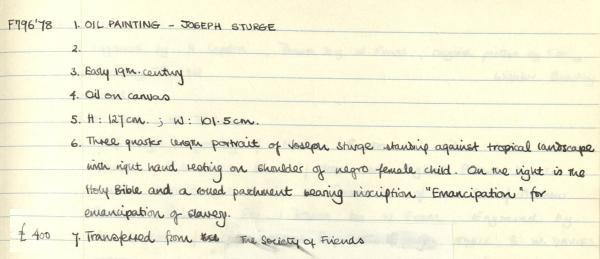 F796'78 1. OIL PAINTING - JOSEPH STURGE
2.
3. Early 19th. century
4. Oil on canvas
5. H: 127cm. ; W: 101.5cm.
6. Three quarter length portrait of Joseph Sturge standing against tropical landscape
with right hand resting on shoulder of negro female child. On the right is the
Holy Bible and a rolled parchment bearing inscription "Emancipation" for
emancipation of slavery.
£400 7. Transferred from The Society of Friends